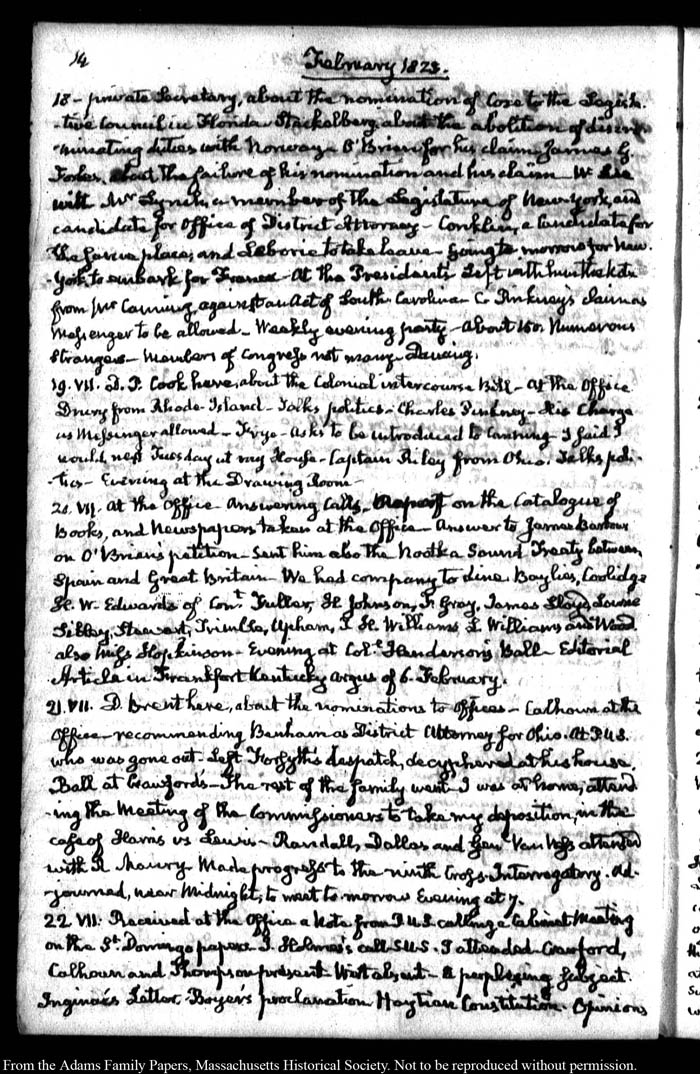 14
February 1823.
18 - private Secretary, about the nomination of Coxe to the Legisla-
-tive Council in Florida - Stackelberg about the abolition of discri-
-minating duties with Norway - O'Brien for his claim James G
Forbes, about the failure of his nomination and his claim
with Mr Lynch, a member of the Legislature of New-York, and
candidate for Office of District Attorney - Conklin, a Candidate for
the same place, and Leborie to take leave - Going to morrow for New-
-York to embark for France - At the Presidents Left with him the Note
from Mr Canning, against an Act of South Carolina - C. Pinkney's claim as
Messenger to be allowed - Weekly evening party - About 150. Numerous
Strangers - Members of Congress not many - Dancing.
19. VII. D. P. Cook here, about the Colonial intercourse Bill - At the Office
Drury from Rhode-Island - Talks politics - Charles Pinkney - His Charge
as Messenger allowed - Frye - asks to be introduced to Canning - I said I
would, next Tuesday at my House - Captain Riley from Ohio. Talks poli-
-tics - Evening at the Drawing Room -
20. VII. At the Office - Answering Calls. Report on the Catalogue of
Books, and Newspapers taken at the Office - Answer to James Barbour
on O'Brian's petition - Sent him also the Nootka Sound Treaty between
Spain and Great Britain - We had company to dine. Baylies, Coolidge
H. W. Edwards of Cont. Fuller, H. Johnson, F. Gray, James Lloyd, Lowrie
Sibley, Stewart, Trimble, Upham, J. H. Williams L. Williams and Wood.
also Miss Hopkinson - Evening at Col. Henderson's Ball - Editorial
Article in Frankfort Kentucky Argus of 6. February.
21. VII. D. Brent here, about the nominations to Offices - Calhoun at the
Office - recommending Benham as District Attorney for Ohio. At P.U.S.
who was gone out. Left Forsyth's despatch, decyphered at his house.
Ball at Crawford's - The rest of the family went. I was at home, attend-
-ing the Meeting of the Commissioners to take my deposition, in the
case of Harris vs Lewis - Randall, Dallas and Genl. Van Ness attended
with R Maury - Made progress to the ninth Cross-Interrogatory. Ad-
-journed, near Midnight, to meet to morrow Evening at 7.
22 VII: Received at the Office a Note from P.U.S. calling a Cabinet Meeting
on the St. Domingo papers - J. Holmes's call S.U.S. I attended. Crawford,
Calhoun and Thompson present Wirt absent - A perplexing subject.
Inginac's Letter - Boyer's proclamation Haytian Constitution. Opinions
From the Adams Family Papers, Massachusetts Historical Society. Not to be reproduced without permission.